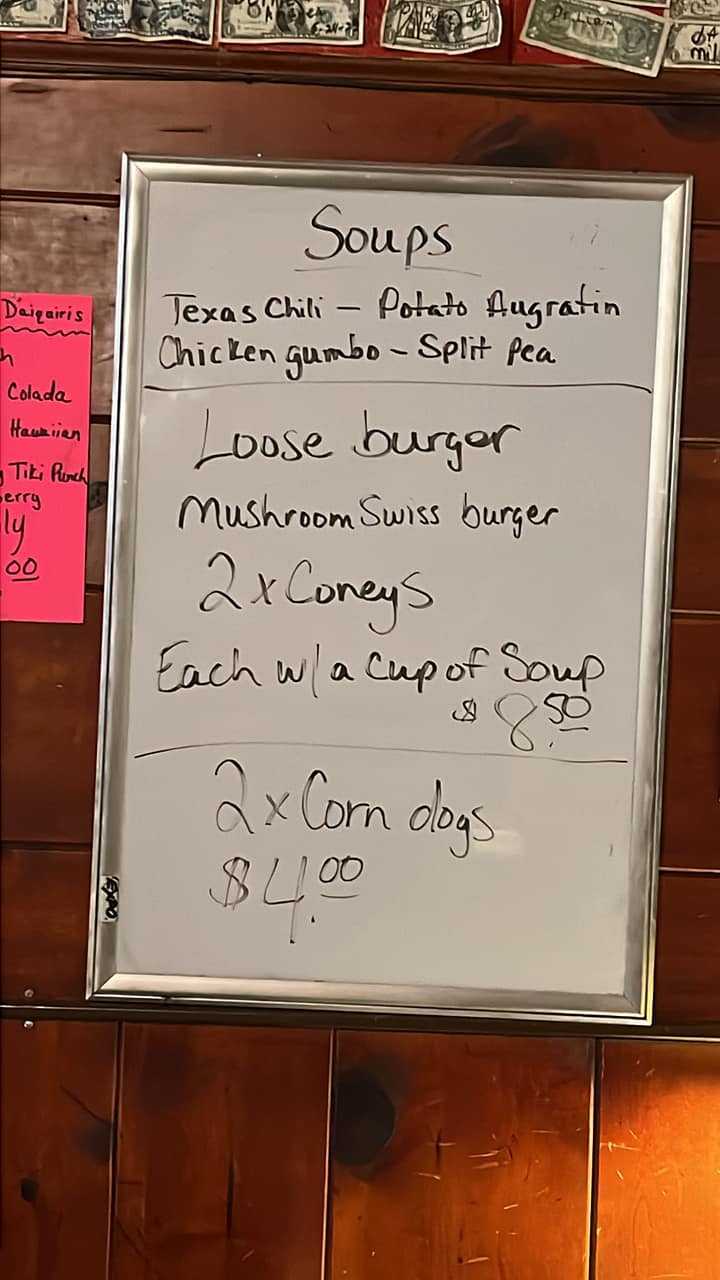 Soups
Texas Chili – Potato Augratin
Chicken gumbo – Split Pea
Loose burger
Mushroom Swiss burger
2x Coneys
Each w/ a Cup of Soup
$8.50
2x Corn dogs
$4.00
Daiqairis
Colada
Hawaiian
Tiki Punch
erry
ly
00
EXPO
Dr. Liam